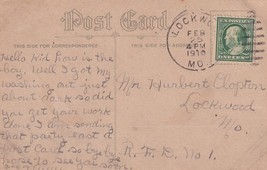 Post Card
THIS SIDE FOR CORRESPONDENCE
THIS SIDE IS FOR ADDRESS
LOCKWOOD
FEB
25
4 PM
1910
MO.
Hello Kid how is the
boy. Well I got my
washing out just
about dark so did
you get your work
done I am sending
that party east a
Post Card so by by
hope to see you so
Mr Hurbert Clopton
Lockwood
Mo.
R. F. D. No. 1.